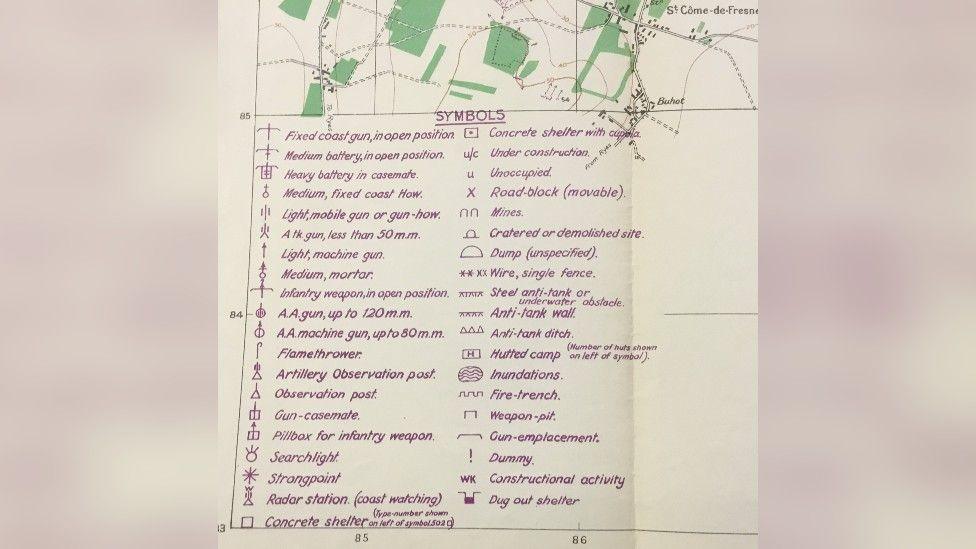 St Côme-de-Fresne
54
Buhot
To Ryes
From Ryes
85
SYMBOLS
Fixed coast gun, in open position.
Medium battery, in open position.
Heavy battery in casemate.
Medium, fixed coast How.
Light, mobile gun or gun-how.
A tk. gun, less than 50 m.m.
Light, machine gun.
Medium, mortar.
Infantry weapon, in open position.
84
A.A. gun, up to 120 m.m.
A.A. machine gun, up to 80 m.m.
Flamethrower.
Artillery Observation post.
Observation post.
Gun-casemate.
Pillbox for infantry weapon.
Searchlight.
Strongpoint
Radar station. (coast watching)
Concrete shelter (Type-number shown
on left of symbol.502□)
Concrete shelter with cupola.
u/c Under construction.
u Unoccupied.
X Road-block (movable).
Mines.
Cratered or demolished site.
Dump (unspecified).
Wire, single fence.
Steel anti-tank or
underwater obstacle.
Anti-tank wall.
Anti-tank ditch.
H Hutted camp (Number of huts shown
on left of symbol).
Inundations.
Fire-trench.
Weapon-pit.
Gun-emplacement.
! Dummy.
WK Constructional activity
Dug out shelter
85
86